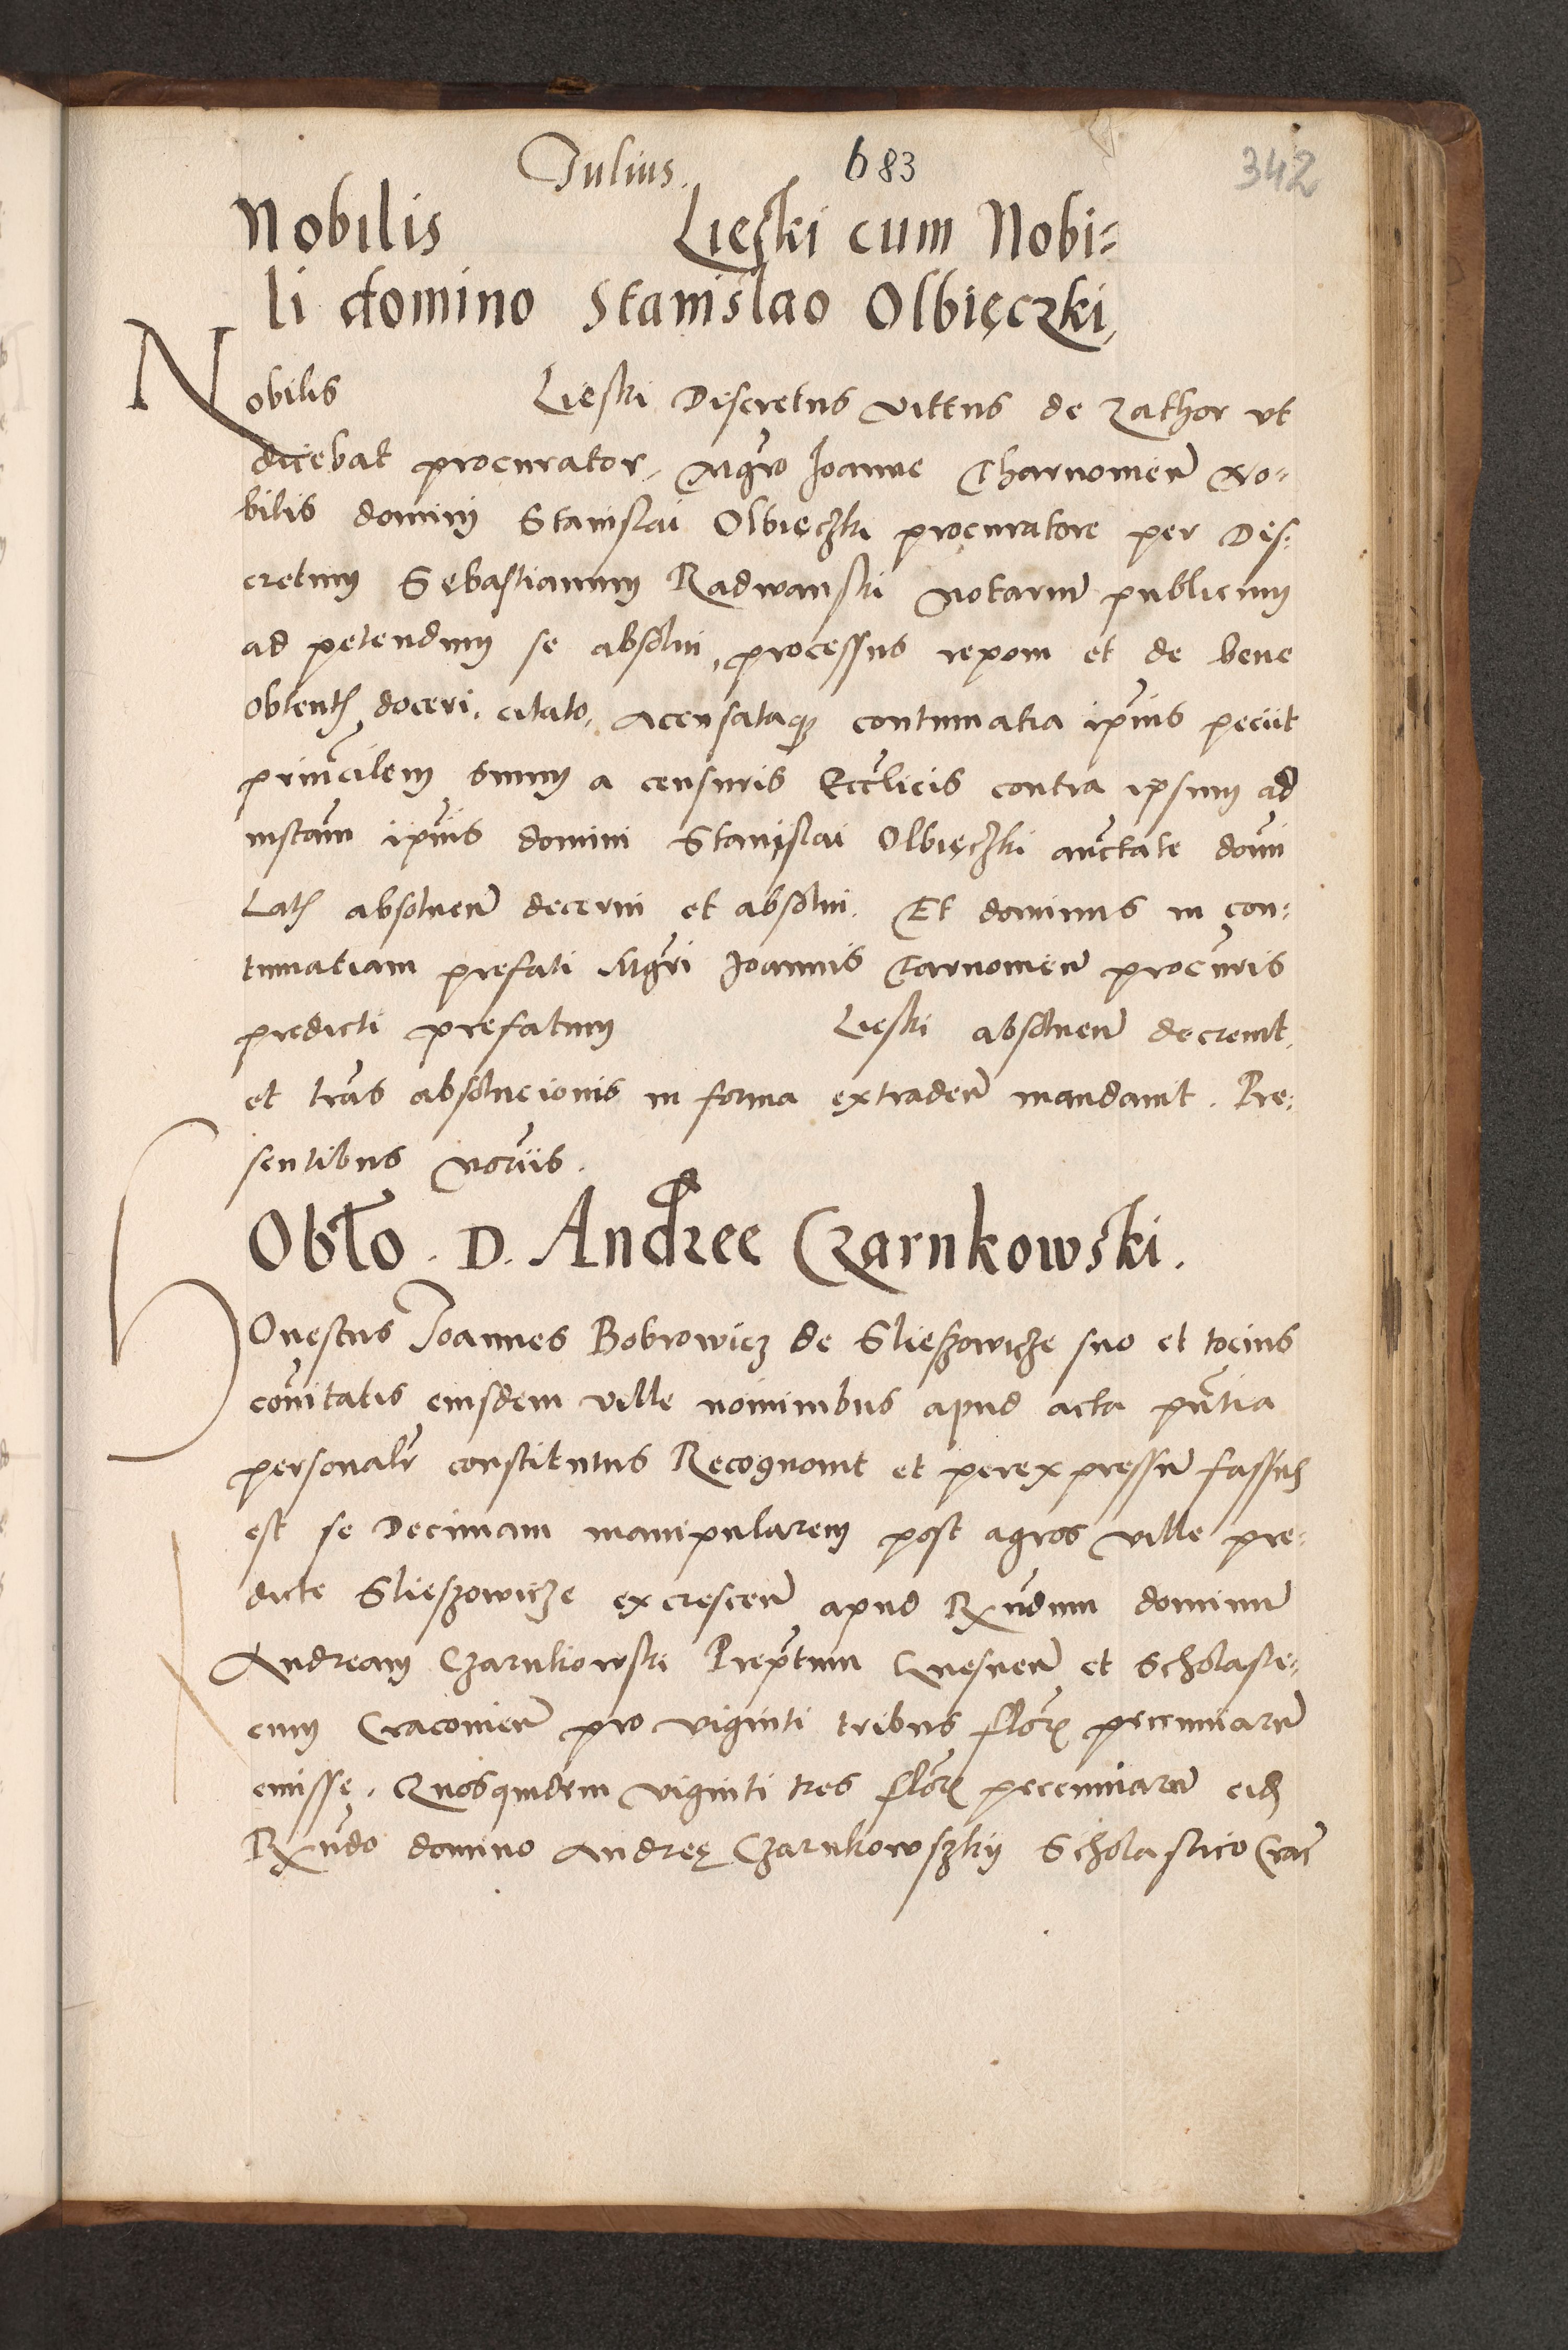 Julius. 683 342
Nobilis Lieski cum Nobi=
li domino Stanislao Olbięczki,
Nobilis Lieski Discretus Vittus de Zathor vt
dicebat procurator, Mgro Joanne Tharnowien No=
bilis domini Stanislai Olbięczki procuratore per Dis=
cretum Sebastianum Radwanski Notarium publicum
ad petendum se absolui, processus reponi et de bene
obtentis doceri, citato, Acensataque contumatia ipsius peciit
principalem suum a censuris Ecclicis contra ipsum ad
instam ipsius domini Stanislai Olbięczki auctate domi
Latis absoluen decerni et absolui. Et dominus in con=
tumatiam prefati Mgri Joannis Tarnowien procuris
predicti prefatum Lieski absoluen decreuit,
et tras absolucionis in forma extraden mandauit. Pre=
sentibus Notariis.
Obto. D. Andree Czarnkowski.
Honestus Joannes Bobrowicz de Slieszowicze suo et tocius
comitatis eiusdem ville nominibus apud acta pntia
personalr constitutus Recognouit et per expressum fassus
est se Decimam manipularem post agros ville pre=
dicte Slieszowicze excrescen apud Rxndum dominum
Andream Czarnkowski Preptum Gnesnen et Scholasti=
cum Cracouien pro viginti tribus flor pecuniarum
emisse. Quosquidem viginti tres flor pecuniarum eid
Rxndo domino Andreę Czarnkowszkij Scholastico Crac